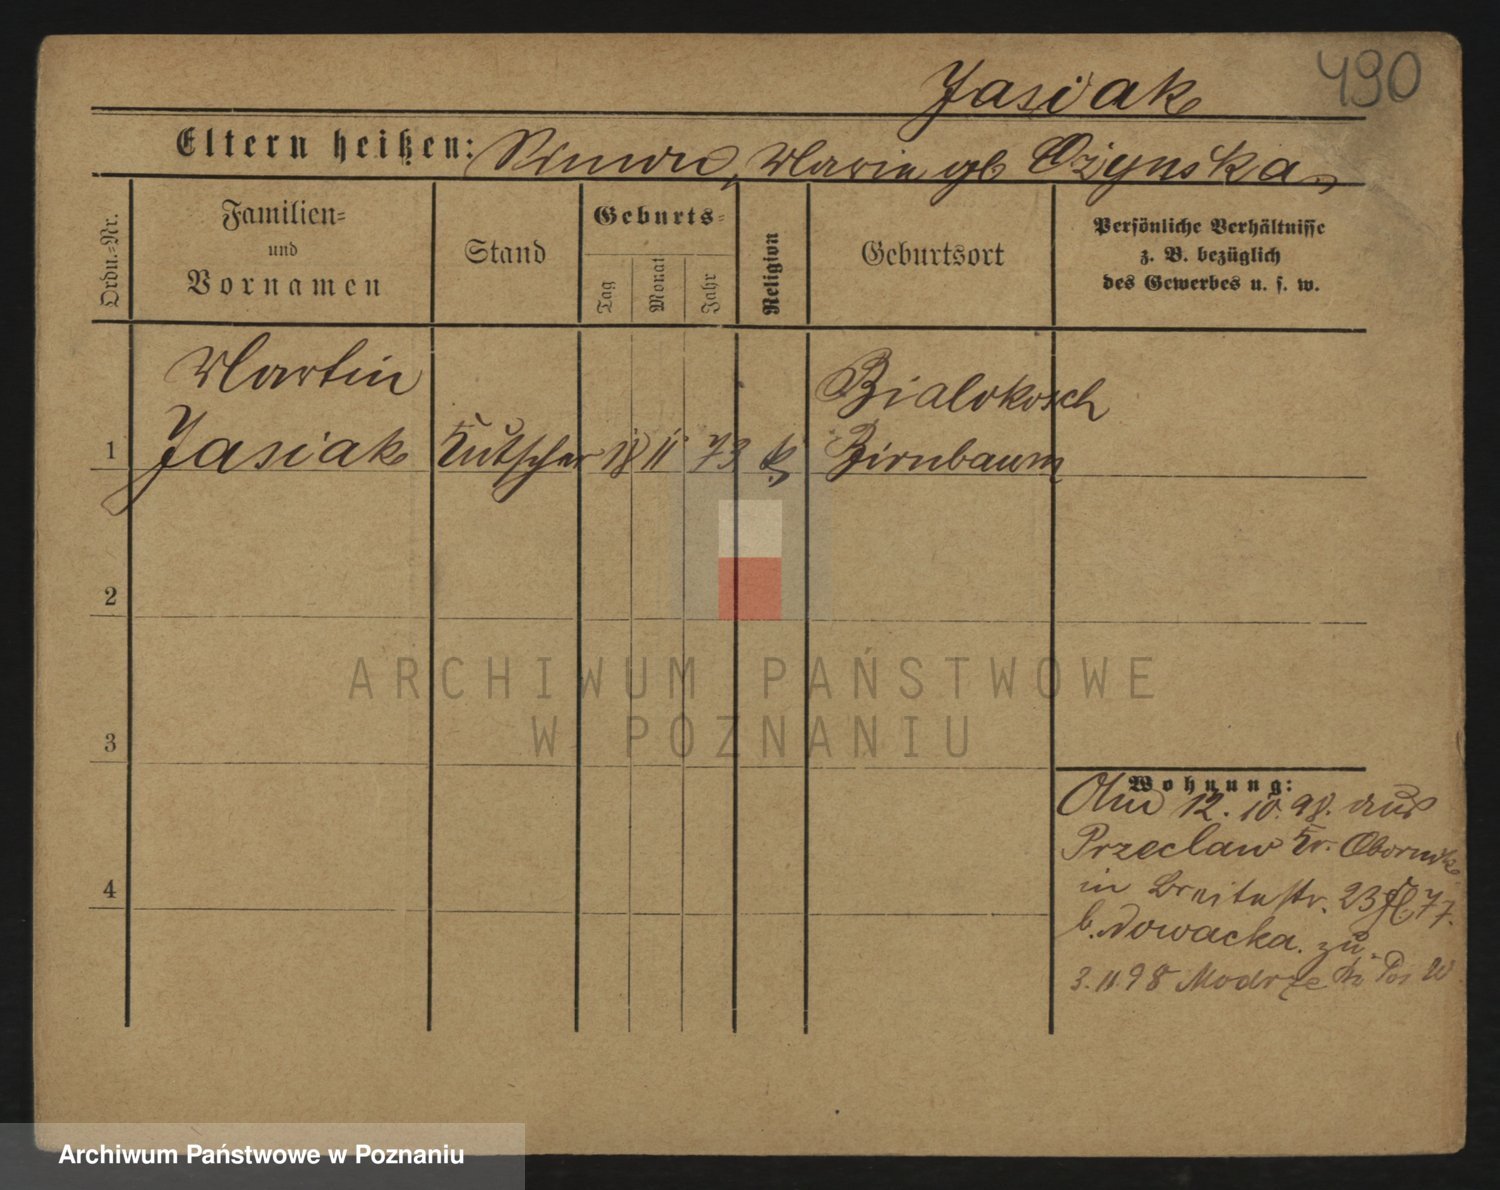 490
Jasiak
Eltern heißen: Simon, Marie gb Ożynska
Ordn.-Nr.
Familien-
und
Vornamen
Stand
Geburts-
Tag
Monat
Jahr
Religion
Geburtsort
Persönliche Verhältnisse
z. B. bezüglich
des Gewerbes u. s. w.
Martin
Bialokosch
1 Jasiak Kutscher 18 11 73 k Birnbaum
2
3
4
ARCHIWUM PAŃSTWOWE
W POZNANIU
Wohnung:
12.10.98. aus
Przeclaw Kr. Obornik
in Breitestr. 23 77.
b. Nowacka. zu
3.11.98 Modrze Kr Pos W
Archiwum Państwowe w Poznaniu